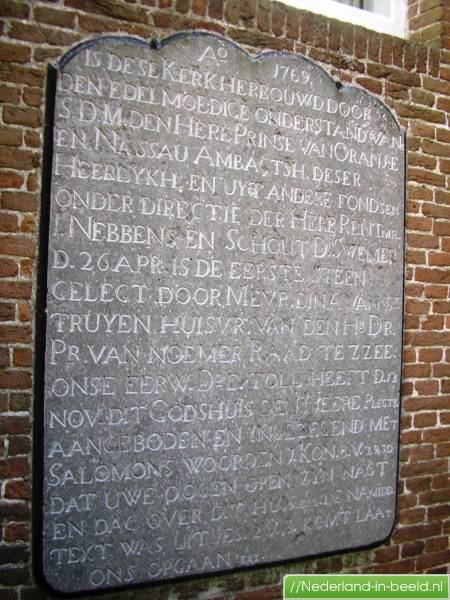 Ao 1769
IS DESE KERK HERBOUWD DOOR
DEN EDELMOEDIGE ONDERSTAND VAN
S.D.M. DEN HERE PRINSE VAN ORANJE
EN NASSAU AMBACTSH. DESER
HEERDYKH. EN UYT ANDERE FONDSEN
ONDER DIRECTIE DER HERR RENTMR.
I. NEBBENS EN SCHOUT D. SWEMER
D. 26 APR. IS DE EERSTE STEEN
GELEGT DOOR MEVR.
TRUYEN HUISVR. VAN DEN HR DR.
PR. VAN NOEMER RAAD TE ZZEE.
ONSE EERW. DO HEEFT D.
NOV. DIT GODSHUIS DEN HEERE
AANGEBODEN EN INGEZEGEND MET
SALOMONS WOORDEN I KON. 8. V. 29
DAT UWE OOGEN OPEN ZYN NAGT
EN DAG OVER DIT HUIS
TEXT WAS UIT JES. 2 V 2.3. KOMT LAAT
ONS OPGAAN
//Nederland-in-beeld.nl